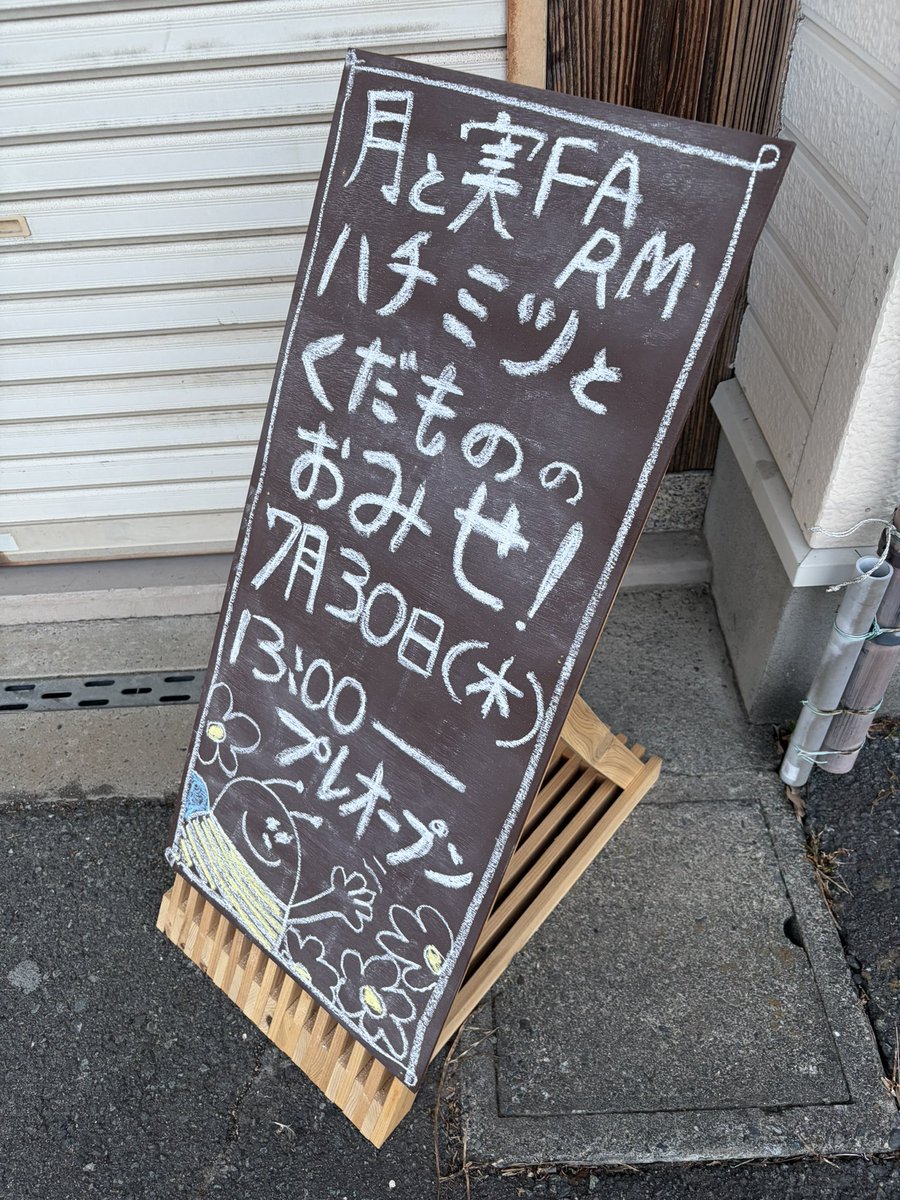 月と実FARM
ハチミツと
くだものの
おみせ!
7月30日(水)
13:00ー
プレオープン